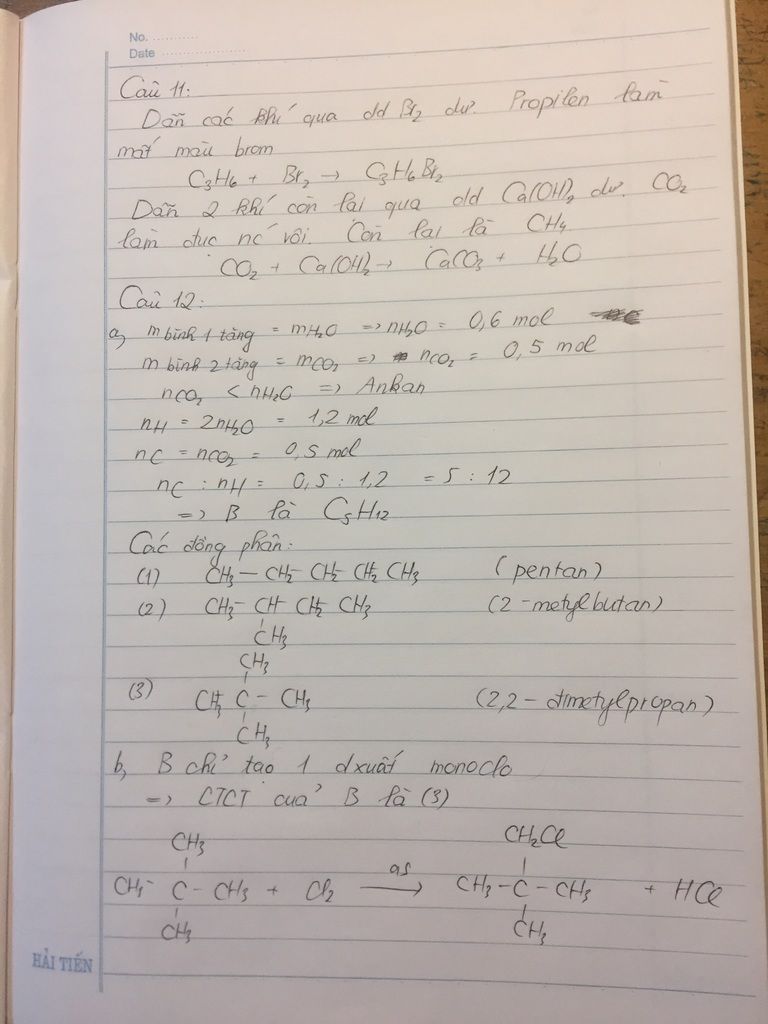 No. ............
Date ........................
Câu 11:
Dẫn các khí qua dd Br2 dư. Propilen làm
mất màu brom
C3H6 + Br2 → C3H6Br2
Dẫn 2 khí còn lại qua dd Ca(OH)2 dư. CO2
làm đục nc vôi. Còn lại là CH4
CO2 + Ca(OH)2 → CaCO3 + H2O
Câu 12:
a, m bình 1 tăng = mH2O => nH2O = 0,6 mol
m bình 2 tăng = mCO2 => nCO2 = 0,5 mol
nCO2 < nH2O => Ankan
nH = 2nH2O = 1,2 mol
nC = nCO2 = 0,5 mol
nC : nH = 0,5 : 1,2 = 5 : 12
=> B là C5H12
Các đồng phân:
(1) CH3 – CH2 – CH2 – CH2 – CH3 (pentan)
(2) CH3 – CH – CH2 – CH3 (2-metylbutan)
CH3
CH3
(3) CH3 – C – CH3 (2,2-đimetylpropan)
CH3
b, B chỉ tạo 1 dxuất monoclo
=> CTCT của B là (3)
CH3 CH2Cl
CH3 – C – CH3 + Cl2 as → CH3 – C – CH3 + HCl
CH3 CH3
HẢI TIẾN